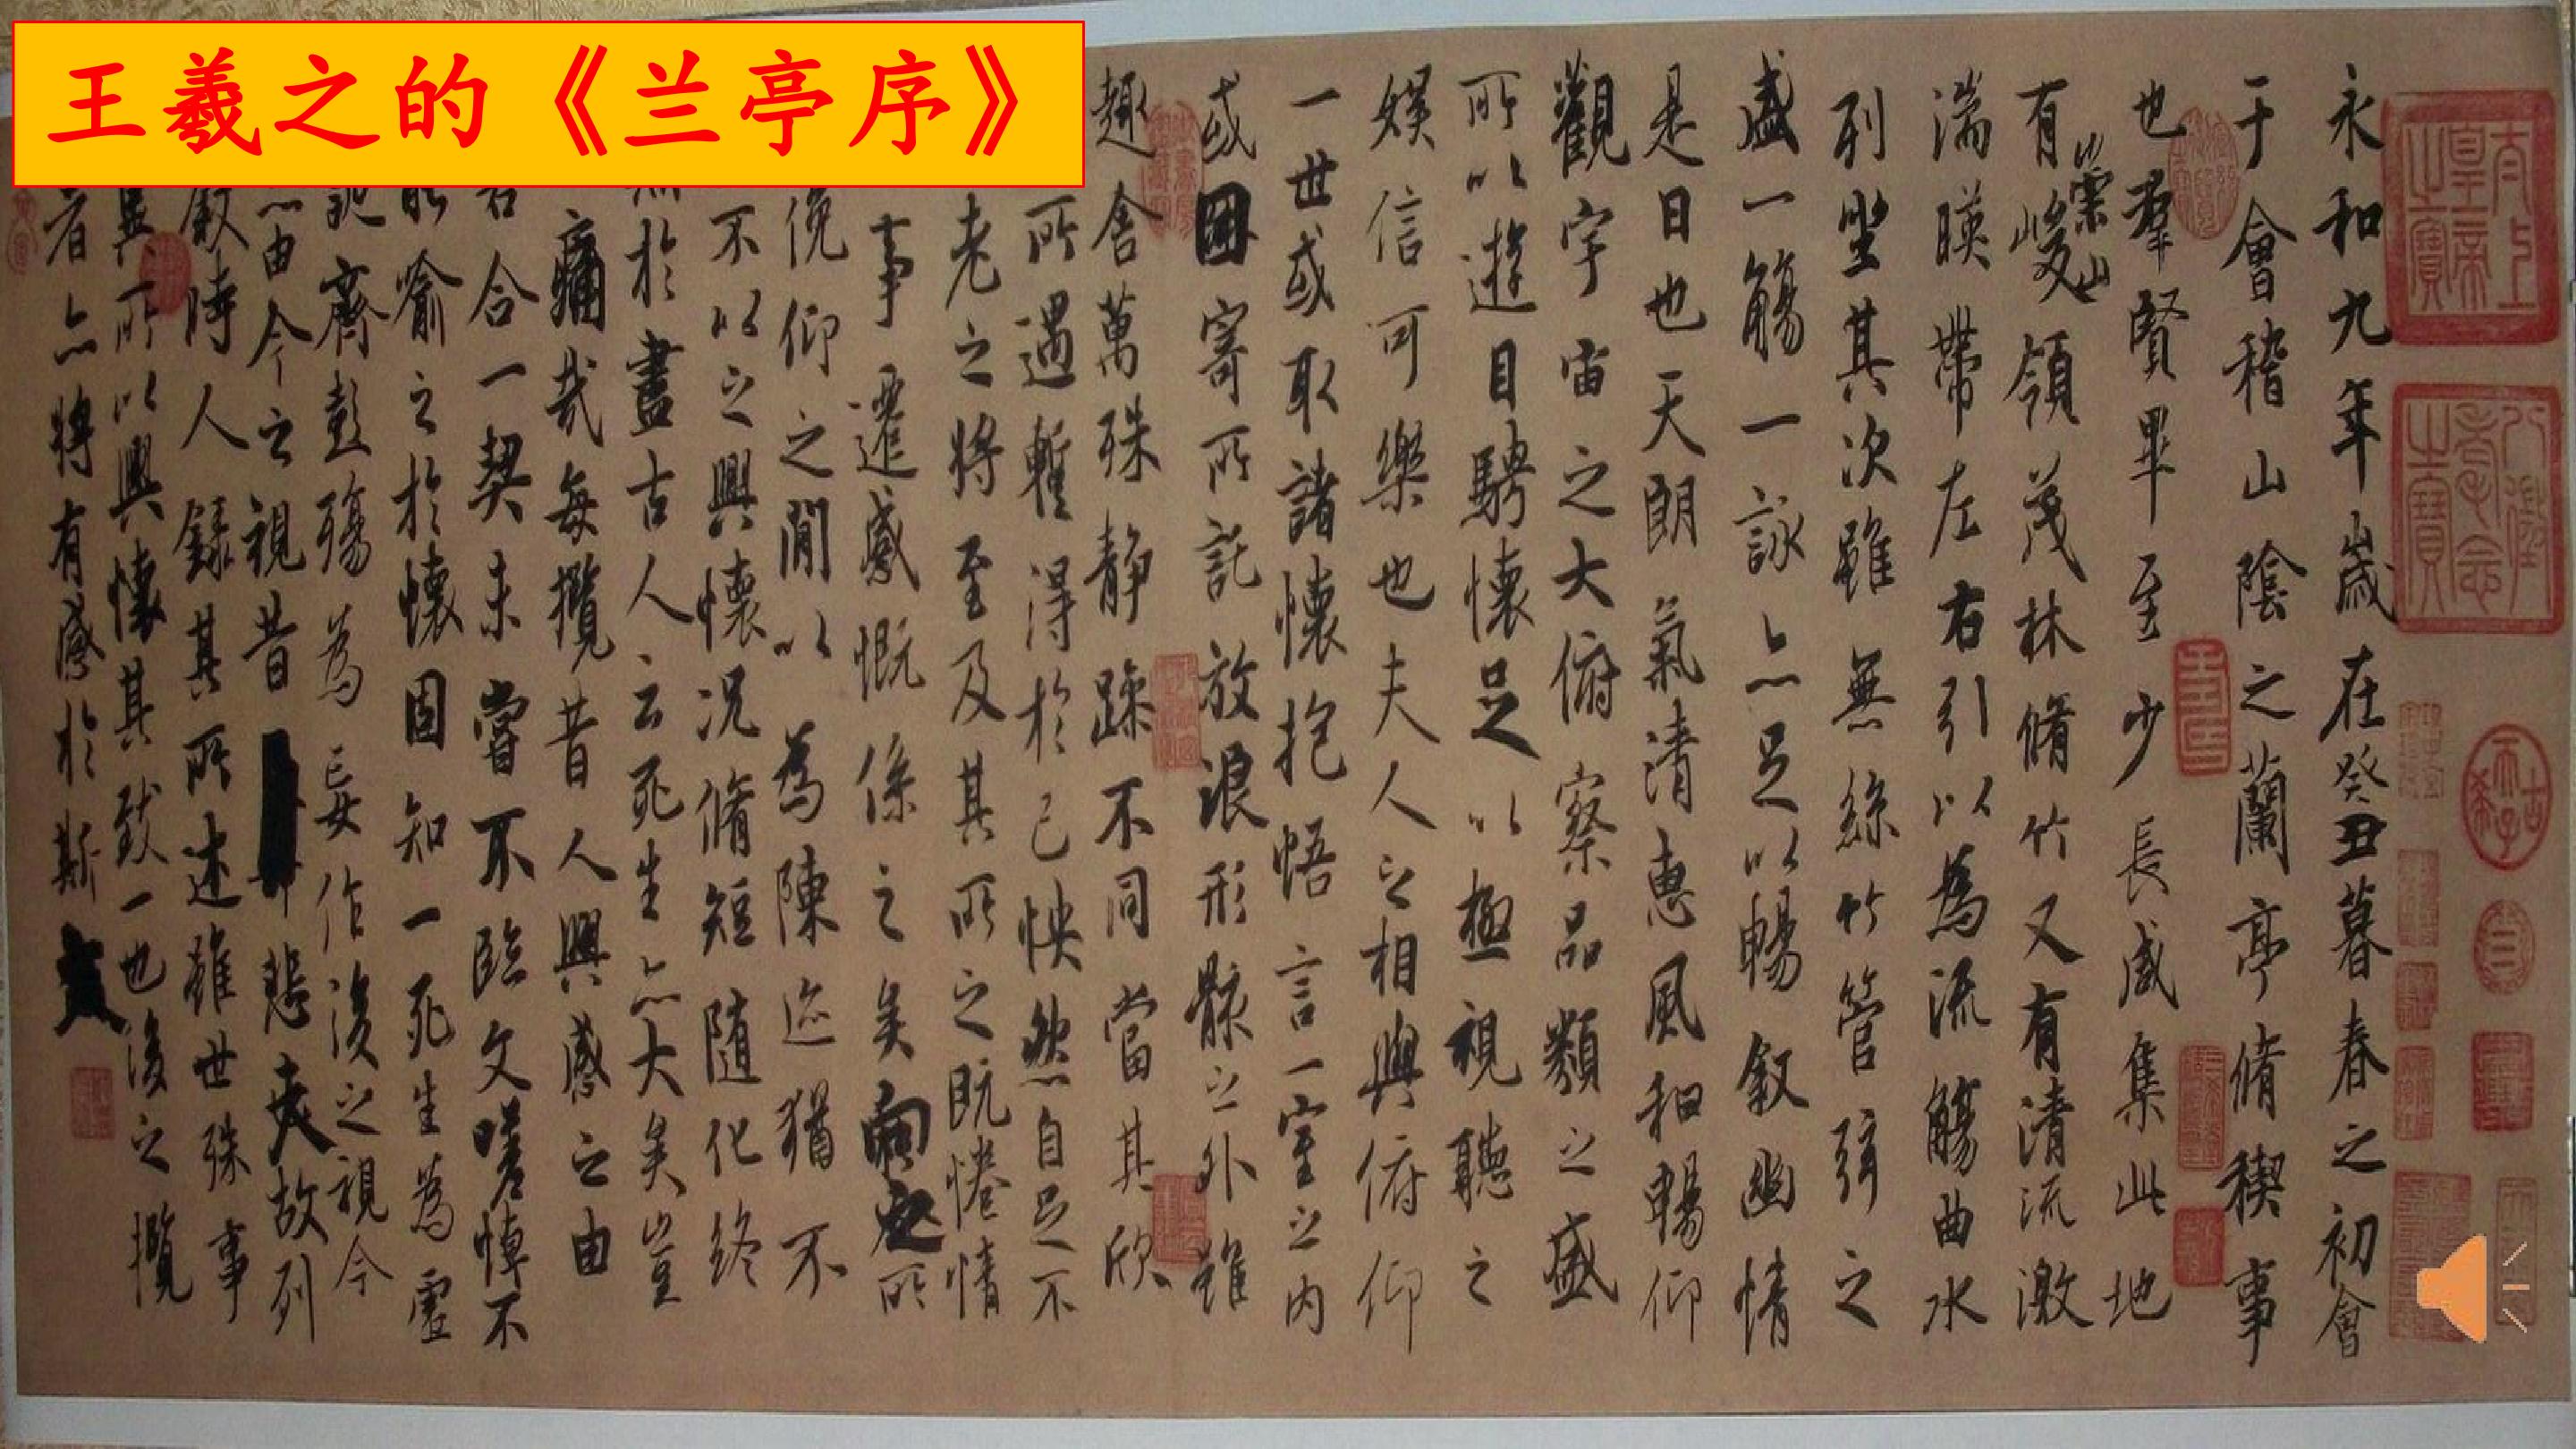 王羲之的《兰亭序》
永和九年歲在癸丑暮春之初會
于會稽山陰之蘭亭脩稧事
也羣賢畢至少長咸集此地
有崇山峻領茂林脩竹又有清流激
湍暎帶左右引以為流觴曲水
列坐其次雖無絲竹管弦之
盛一觴一詠亦足以暢叙幽情
是日也天朗氣清惠風和暢仰
觀宇宙之大俯察品類之盛
所以遊目騁懷足以極視聽之
娛信可樂也夫人之相與俯仰
一世或取諸懷抱悟言一室之內
或因寄所託放浪形骸之外雖
趣舍萬殊靜躁不同當其欣
所遇暫得於己怏然自足不
老之將至及其所之既惓情
事遷感慨係之矣向之所
俛仰之閒以為陳迹猶不
不以之興懷況脩短隨化終
於盡古人云死生亦大矣豈
痛哉每攬昔人興感之由
合一契未嘗不臨文嗟悼不
能喻之於懷固知一死生為虛
誕齊彭殤為妄作後之視今
亦由今之視昔悲夫故列
叙時人錄其所述雖世殊事
異所以興懷其致一也後之攬
者亦將有感於斯文
太上皇帝之寶
八徵耄念之寶
古稀天子